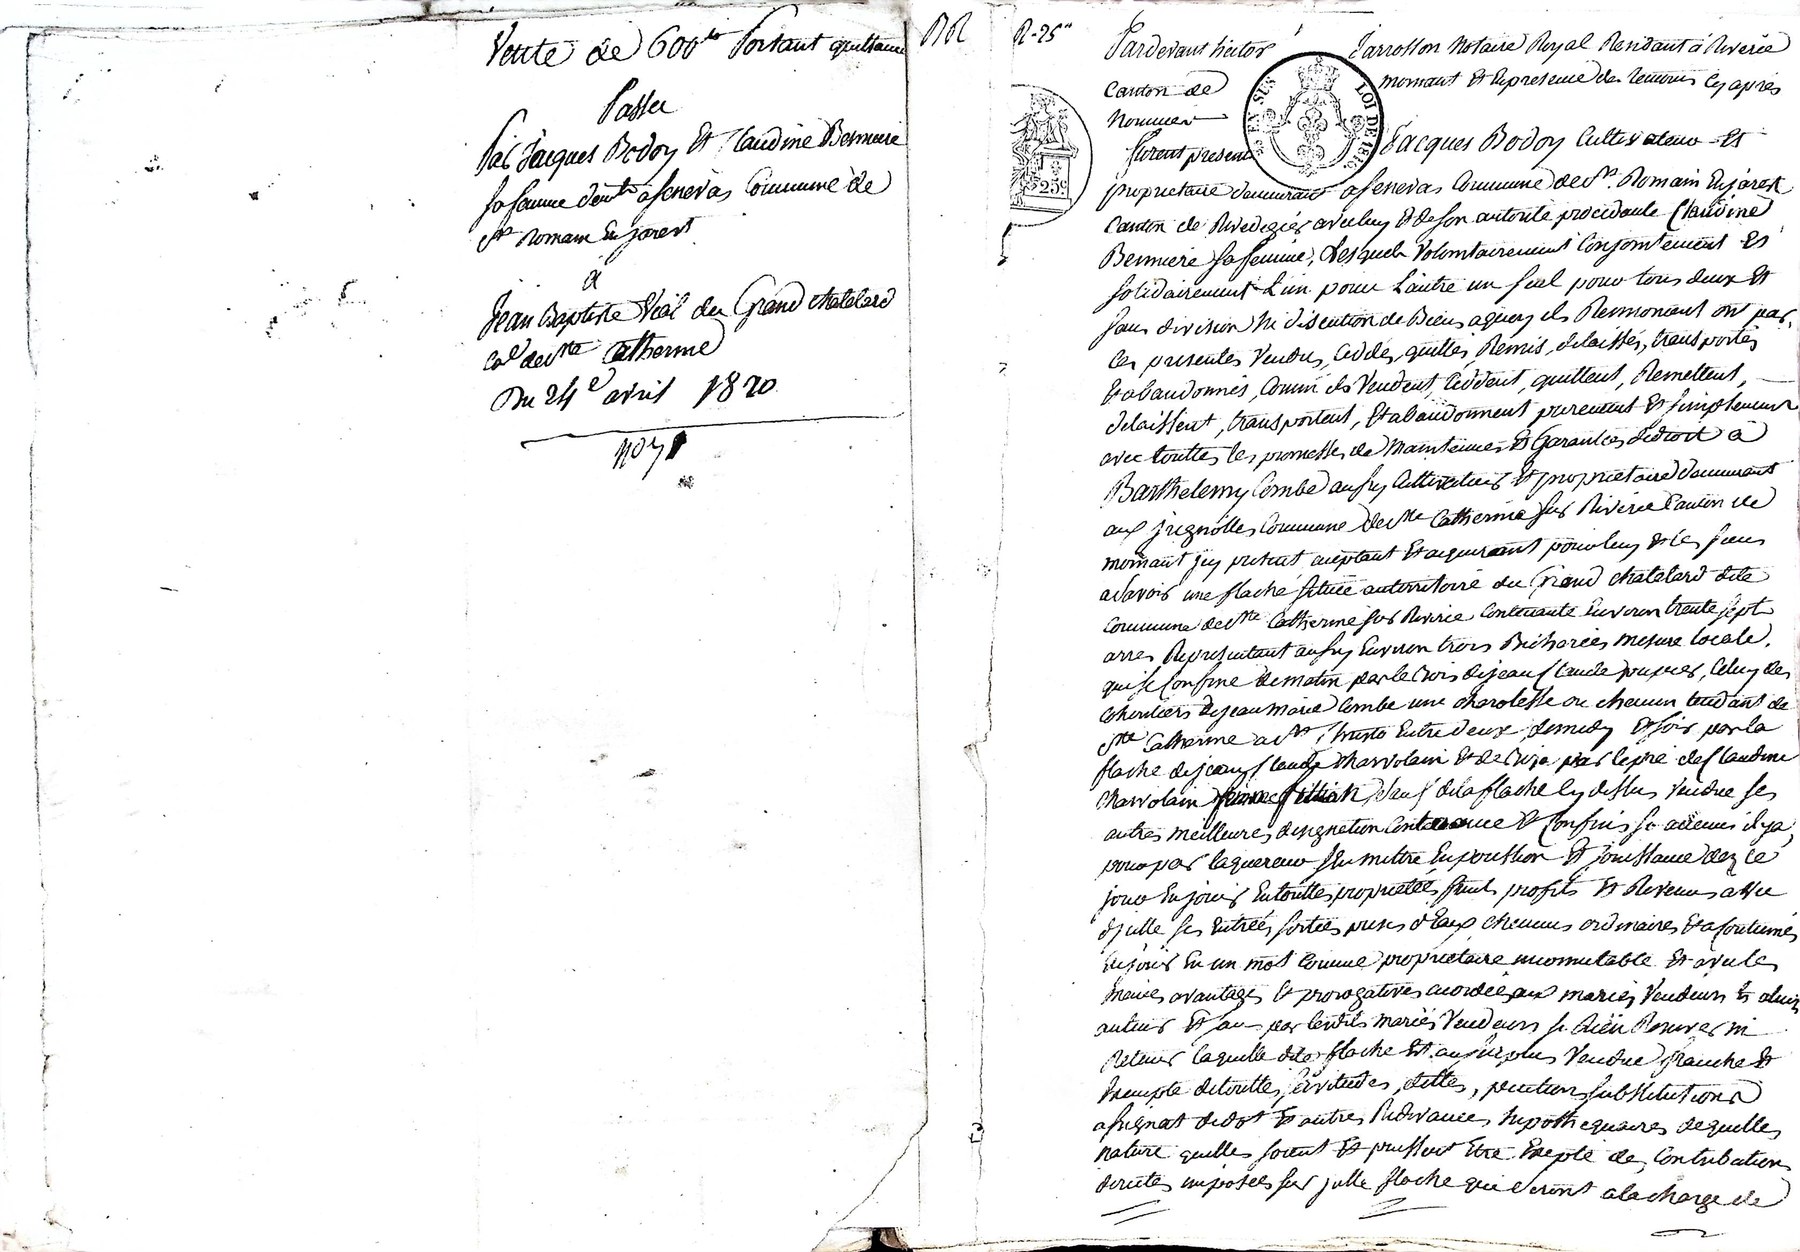 Vente de 600ᵗᵗ Portant quittance
Passée
Par Jacques Bodoy Et Claudine Bernniere
sa femme demᵗˢ a senevas Commune de
Sᵗ Romain En jarest
à
Jean Baptiste Vial du Grand chatelard
Cⁿᵉ de Sᵗᵉ Catherine
Du 24ᵉ avril 1820
R-25ᶜ
Pardevant hector Jarrosson Notaire Royal Residant à Riverie
Canton de mornant Et En presence des temoins Cy après
Nommés
furent present Jacques Bodoy Cultivateur Et
EN SUS LOI DE 1816
25ᶜ
proprietaire demeurant a senevas Commune de Sᵗ Romain En jarest
Canton de Rivedegier avec luy Et de son autorité procedante Claudine
Bernniere sa femme, Lesquels Volontairement Conjointement Et
solidairement L'un pour L'autre un seul pour tous deux Et
sans division Ni discution de Biens a quoy ils Renoncent ont par
les presentes Vendus, Ceddés, quittés, Remis, delaissés, transportés
Et abandonnés, Comme ils Vendent, Ceddent, quittent, Remettent,
delaissent, transportent, Et abandonnent purement Et simplement
avec touttes les promesses de Maintenues Et Garanties de droit à
Barthelemy Combe aussy Cultivateur Et proprietaire demeurant
aux jugnolles Commune de Sᵗᵉ Catherine sur Riverie Canton de
mornant jcy present aceptant Et aquerant pour luy Et les siens
a savoir une flache située au territoire du Grand chatelard dite
Commune de Sᵗᵉ Catherine sur Riverie Contenante Environ trente sept
arres Representant aussy Environ trois Bicherées mesure locale,
qui se Confine de matin par le Bois de jean Claude poyures, Celuy des
heritiers de jean Marie Combe une charolesse ou chemin tendant de
Sᵗᵉ Catherine a Sᵗ Entre deux, de midy Et soir par la
flache de jean Claude Charvolain Et de Bize par le pré de Claudine
Charvolain sauf de la flache Cy dessus Vendue ses
autres meilleures designation Contenance Et Confins si aucuns il y a,
pour par laquereur s'en mettre En possession Et jouissance dez ce
jour En jouir En toutte proprietée fruits profits Et Revenus avec
d'jcelle ses Entrées sorties prises d'Eaux chemins ordinaires Et acoutumés
En jouir En un mot Comme proprietaire incomutable Et avec les
memes avantages Et prerogatives acordée aux mariés Vendeurs
auteurs Et sans par lesdits mariés Vendeurs se Rien Reserver ni
Retenir laquelle ditte flache Est au surplus Vendue franche Et
Exempte de touttes servitudes, dettes, pentions substitutions
assignat de dot Et autres Redevances hipothequaires de quelles
nature quelles soient Et puissent Etre Exepté de Contributions
directes imposées sur jcelle flache qui seront a la charge de